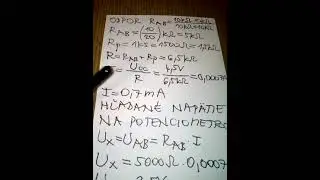 ODPOR RAB = 10kΩ·10kΩ / 10kΩ+10kΩ
RAB = (10/20) kΩ = 5kΩ
RP = 1k5 = 1500Ω = 1,5kΩ
R = RAB + RP = 6,5kΩ
= UCC / R = 4,5V / 6,5kΩ = 0,0007
I = 0,7mA
HĽADANÉ NAPÄTIE
NA POTENCIOMETR
UX = UAB = RAB · I
UX = 5000Ω · 0,0007